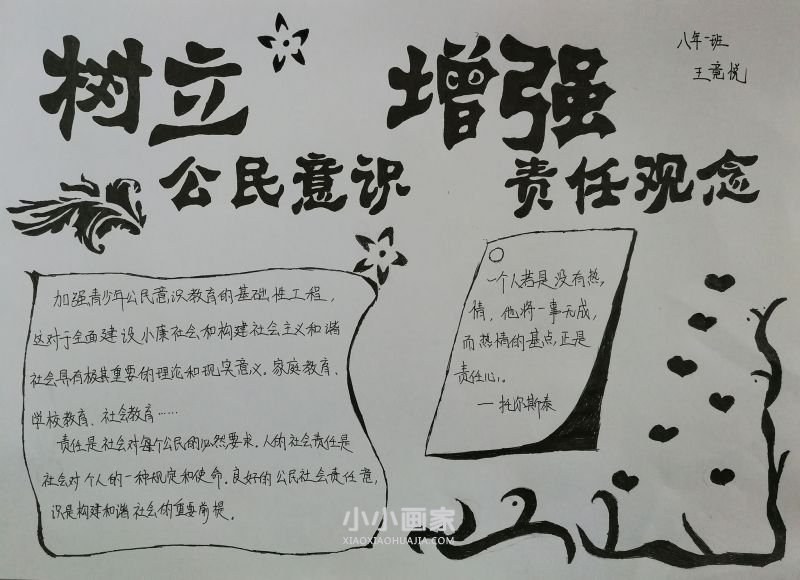 树立 增强
八年一班
王竟悦
公民意识 责任观念
加强青少年公民意识教育的基础性工程，
这对于全面建设小康社会和构建社会主义和谐
社会具有极其重要的理论和现实意义。家庭教育、
学校教育、社会教育……
责任是社会对每个公民的必然要求。人的社会责任是
社会对个人的一种规定和使命。良好的公民社会责任意，
识是构建和谐社会的重要前提。
一个人若是没有热，
情，他将一事无成，
而热情的基点正是
责任心。
—托尔斯泰
小小画家
XIAOXIAOHUAJIA.COM